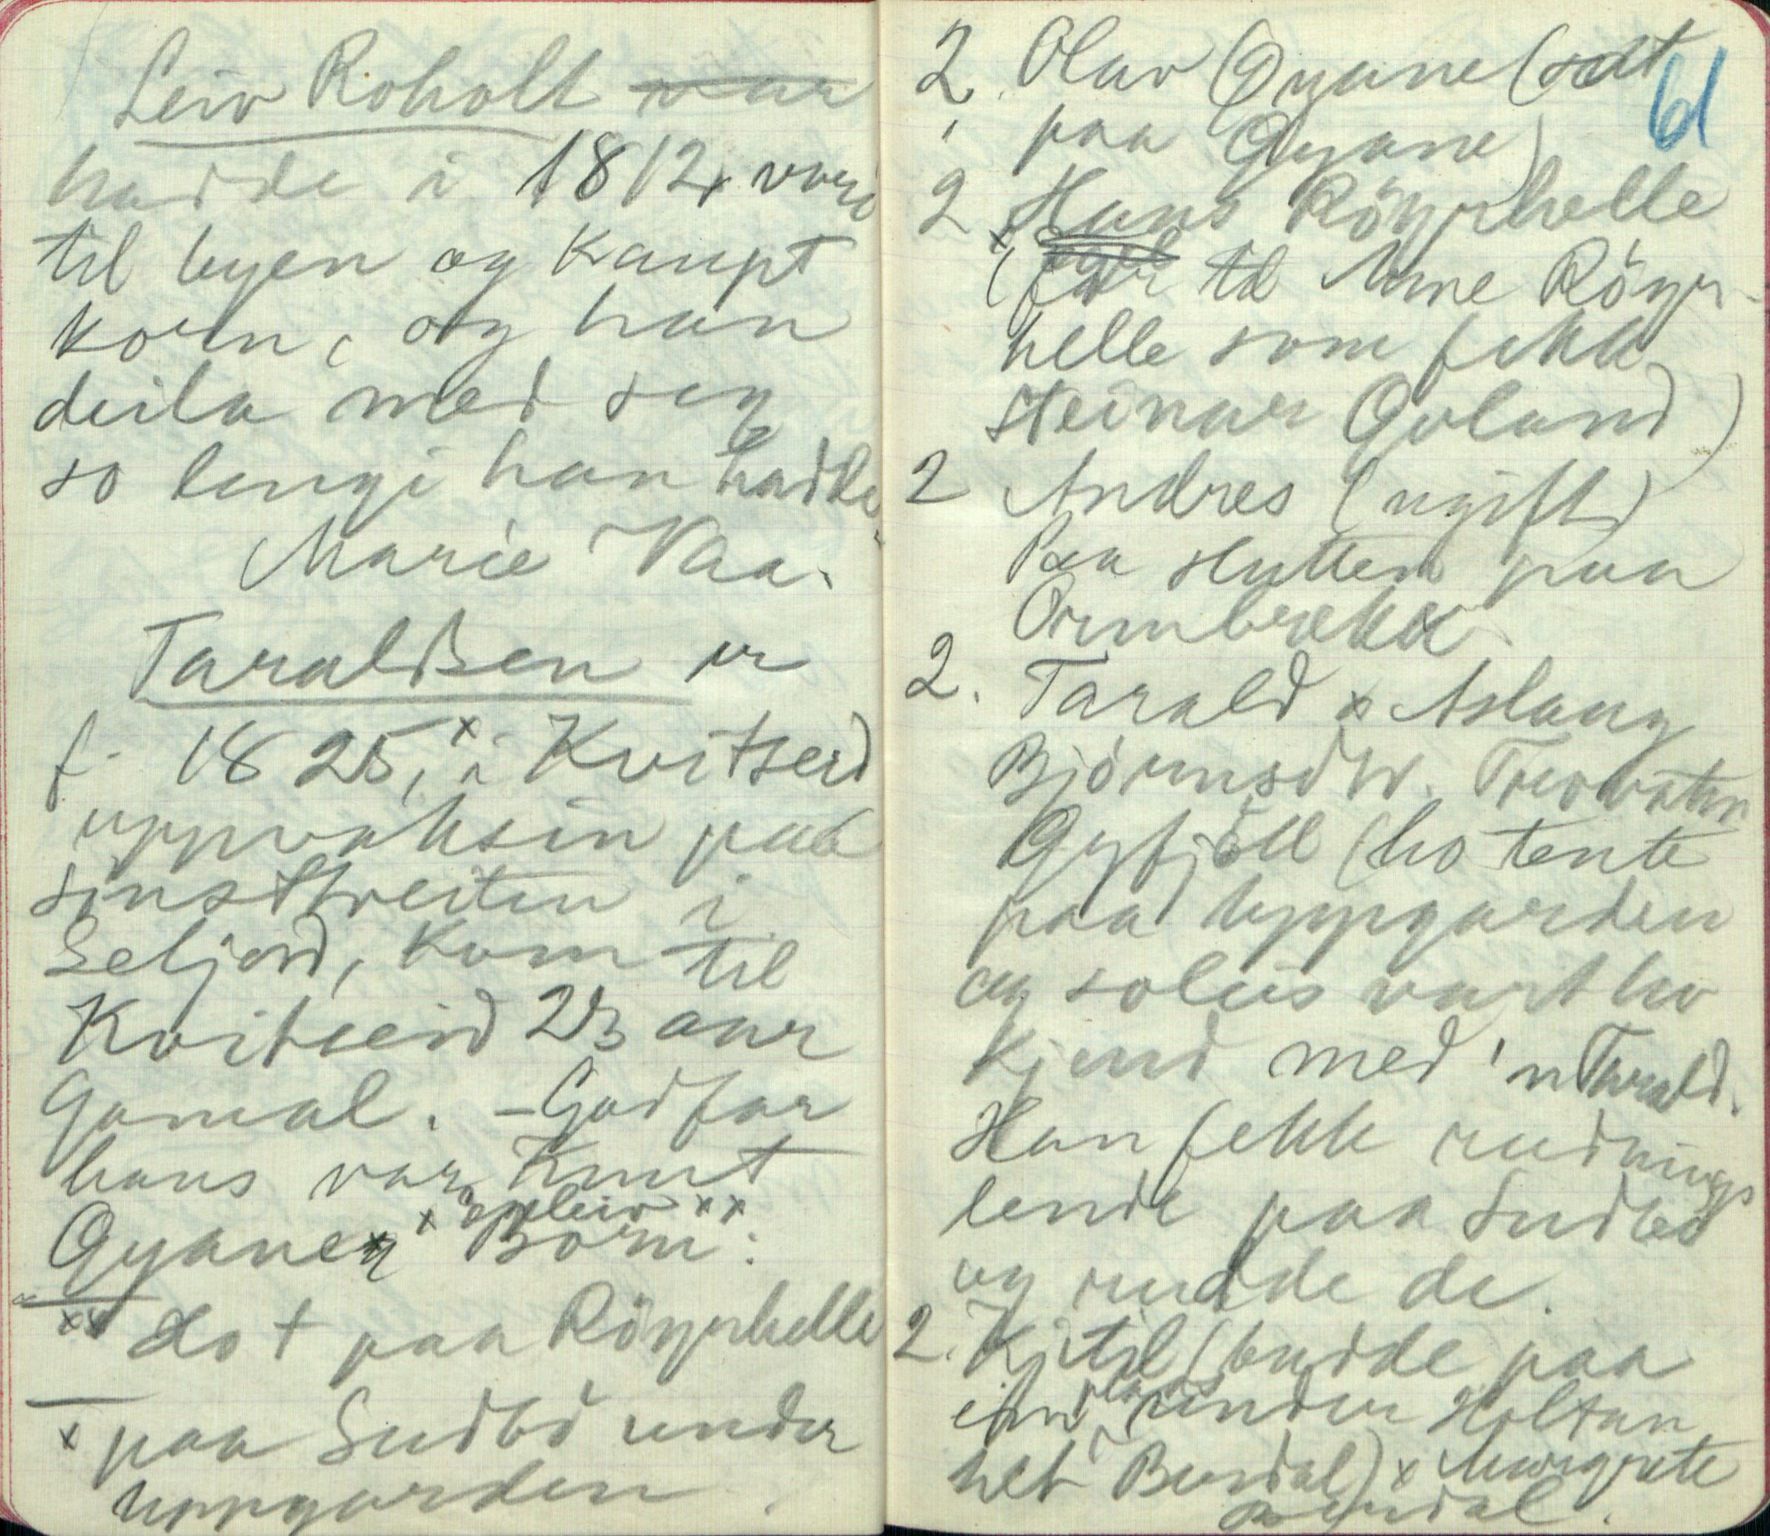 Leiv Roholt var
hadde i 1812, vori
til byen og kaupt
korn, og han
deila med seg
so lengi han hadde
Marie Vaa.
Taraldsen er
f. 1825,x i Kvitseid
uppvaksin paa
i
Seljord, kom til
Kvitseid 23 aar
gamal. – Godfar
hans var Knut
Öyane x Born xx:
xx Ho † paa Röyrhelle
x paa Sudbö under
Uppgarden.
61
2. Olav Öyane (sat
paa Öyane)
2 x Hans Röyrhelle
(far til Anne Röyr-
helle som fekk
Steinar Öyland)
2 Andres (ugift)
Paa Hytten paa
Ormbrekk
2. Tarald x Aslaug
Björnsdtr.
Gyfjöll (ho tente
paa Uppgarden
og soleis vart ho
kjend med 'n Tarald.
Han fekk rudnings
lende paa Sudbö
og rudde de.
2. Kjetil (budde paa
ein plass under Holtan
het Burdal) x Margrete
Burdal.